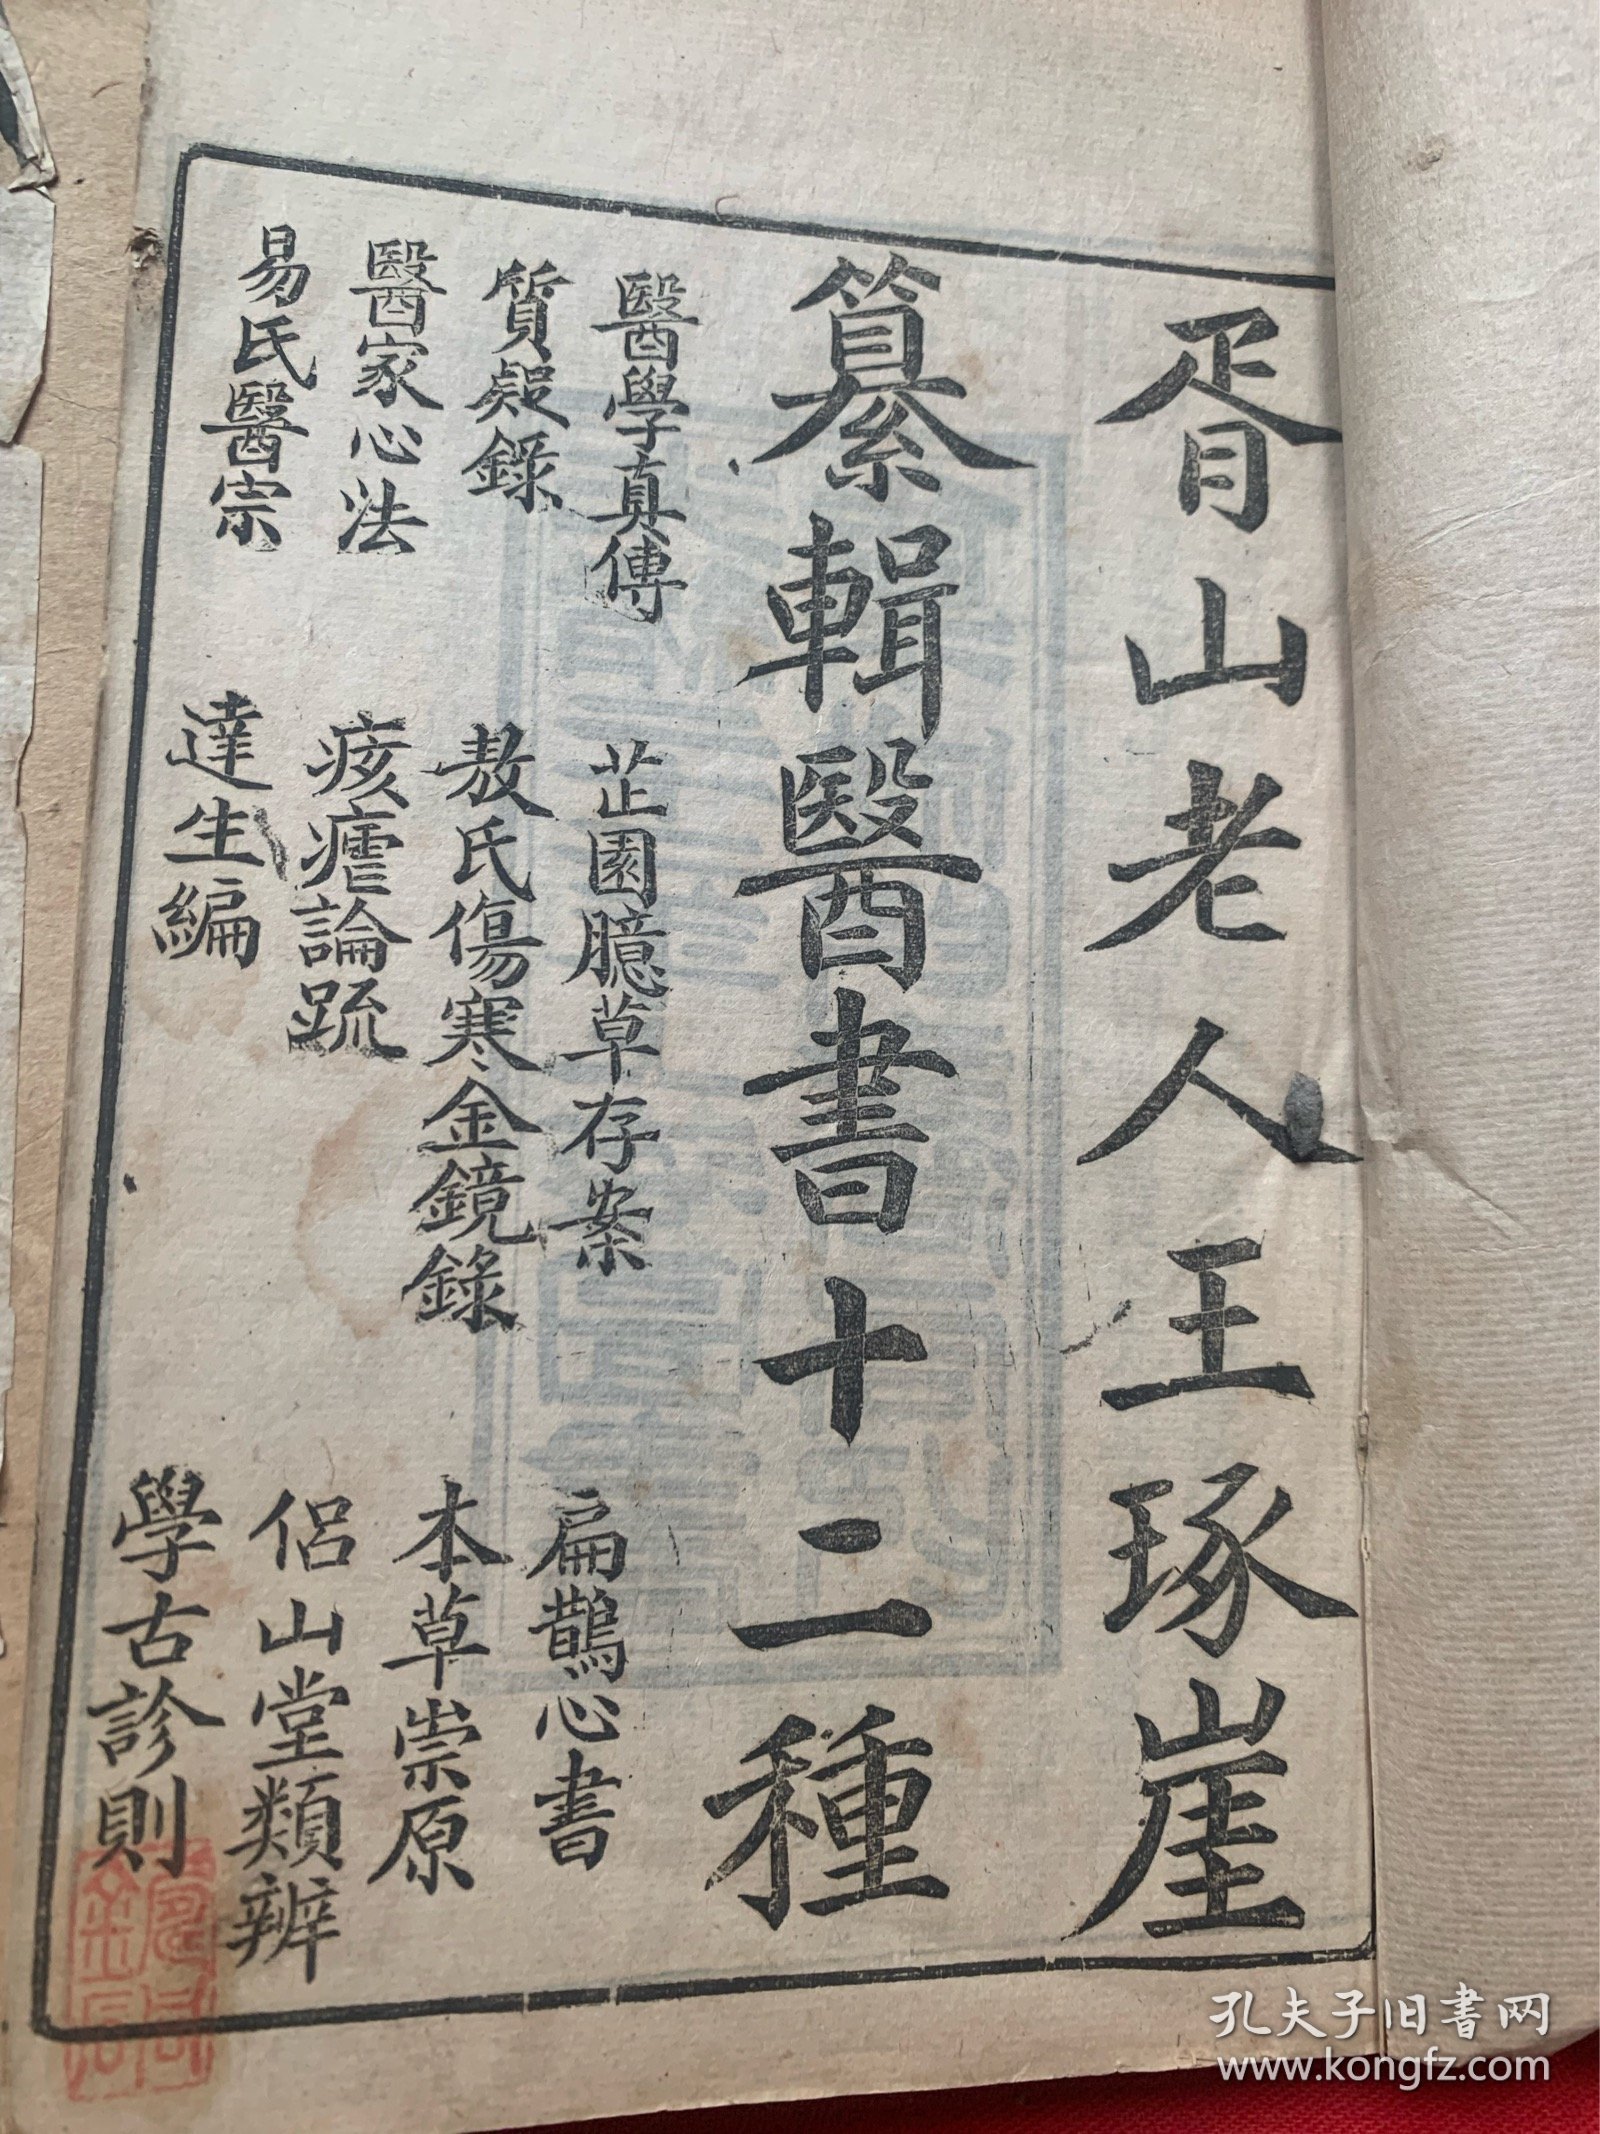 胥山老人王琢崖
纂輯醫書十二種
醫學真傳
芷園臆草存案
扁鵲心書
質疑錄
敖氏傷寒金鏡錄
本草崇原
醫家心法
痎瘧論疏
侶山堂類辨
易氏醫宗
達生編
學古診則
孔夫子旧書网
www.kongfz.com